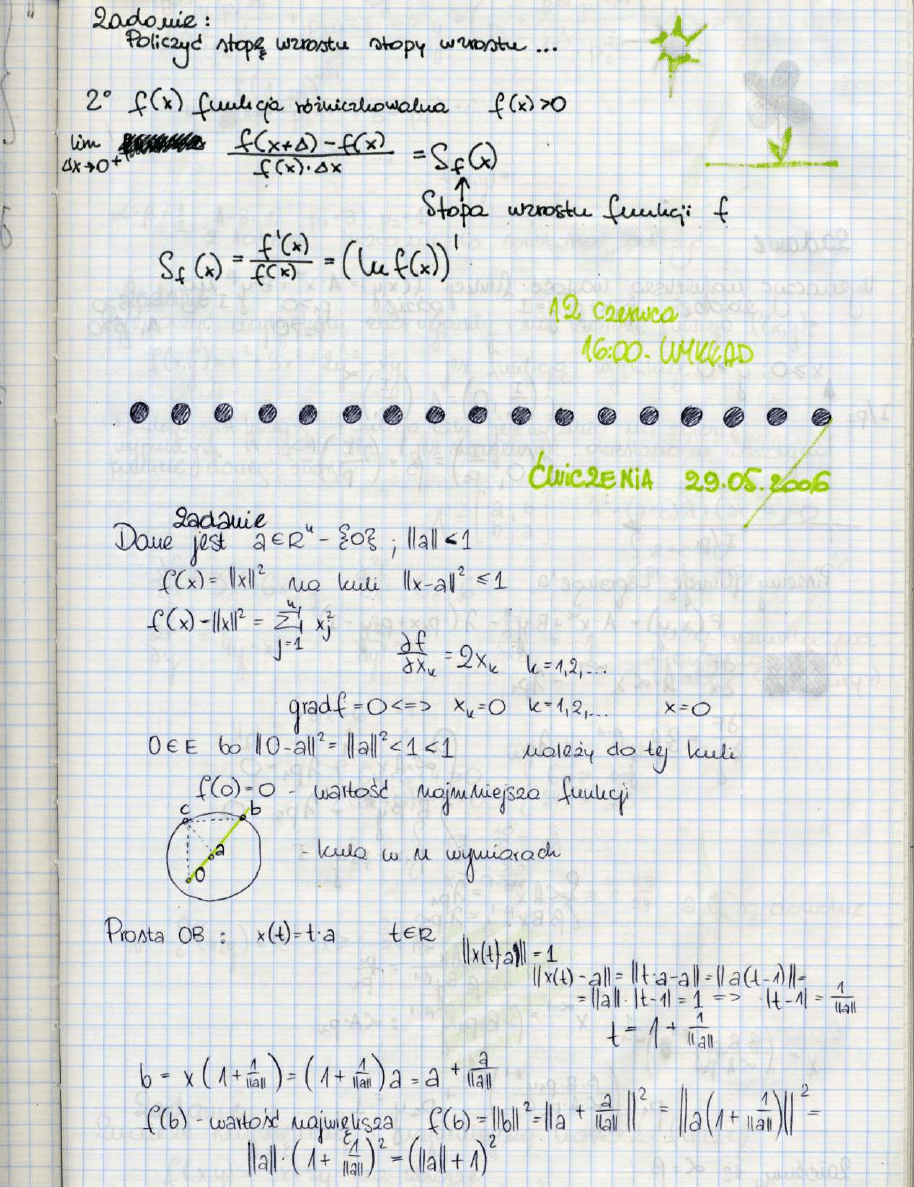 Zadanie:
Policzyć stopę wzrostu stopy wzrostu ...
2° f(x) funkcja różniczkowalna f(x)>0
lim Δx→0+ f(x+Δ)-f(x) / f(x)·Δx = S_f(x)
↑
Stopa wzrostu funkcji f
S_f(x) = f'(x)/f(x) = (ln f(x))'
12 czerwca
16:00. WYKŁAD
ĆWICZENIA 29.05.2006
Zadanie
Dane jest a∈R^n - {0} ; ||a||<1
f(x) = ||x||² na kuli ||x-a||² ≤ 1
f(x) - ||x||² = Σ_{j=1}^{n} x_j²
∂f/∂x_k = 2x_k k=1,2,...
gradf = 0 <=> x_k=0 k=1,2,... x=0
0∈E bo ||0-a||² = ||a||² < 1 < 1 należy do tej kuli
f(0)=0 - wartość najmniejsza funkcji
c b
a
0
- kula w n wymiarach
Prosta OB : x(t)=t·a t∈R
||x(t)-a|| = 1
||x(t)-a|| = ||t·a-a|| = ||a(t-1)|| =
= ||a||·|t-1| = 1 => |t-1| = 1/||a||
t = 1 + 1/||a||
b = x(1+1/||a||) = (1+1/||a||)a = a + a/||a||
f(b) - wartość największa f(b) = ||b||² = ||a + a/||a|| ||² = ||a(1+1/||a||)||² =
||a||·(1+1/||a||)² = (||a||+1)²